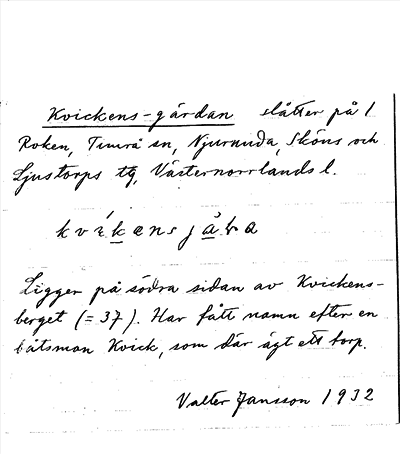 Kvickens-gärdan slåtter på 1
Roken, Timrå sn, Njurunda, Sköns och
Ljustorps tg, Västernorrlands l.
kvíkens
Ligger på södra sidan av Kvickens-
berget (= 37). Har fått namn efter en
båtsman Kvick, som där ägt ett torp.
Valter Jansson 1932